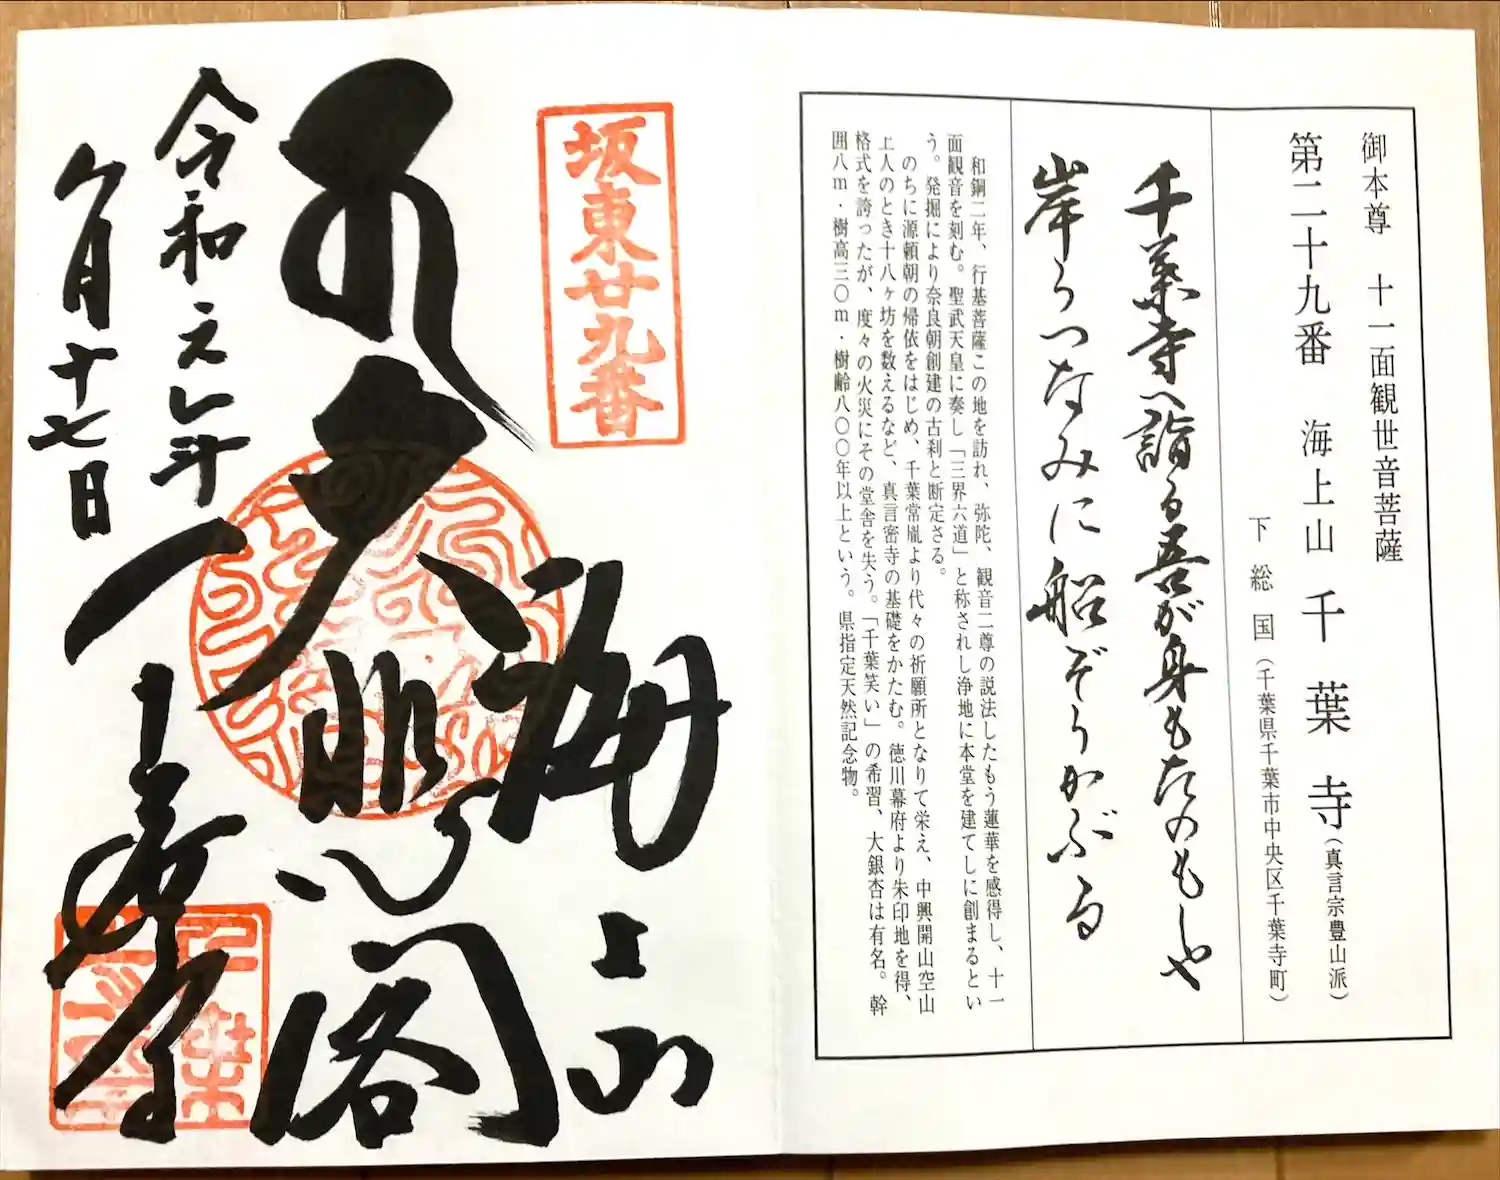 御本尊 十一面観世音菩薩
第二十九番 海上山 千葉寺(真言宗豊山派)
下総国(千葉県千葉市中央区千葉寺町)
千葉寺へ詣る吾が身もたのもしや
岸うつなみに船ぞうかぶる
和銅二年、行基菩薩この地を訪れ、弥陀、観音二尊の説法したもう蓮華を感得し、十一
面観音を刻む。聖武天皇に奏し「三界六道」と称されし浄地に本堂を建てしに創まるとい
う。発掘により奈良朝創建の古刹と断定さる。
のちに源頼朝の帰依をはじめ、千葉常胤より代々の祈願所となりて栄え、中興開山空山
上人のとき十八ヶ坊を数えるなど、真言密寺の基礎をかたむ。徳川幕府より朱印地を得、
格式を誇ったが、度々の火災にその堂舎を失う。「千葉笑い」の希習、大銀杏は有名。幹
囲八m・樹高三〇m・樹齢八〇〇年以上という。県指定天然記念物。
坂東廿九番
海上山
大悲閣
千葉寺
令和元年
九月十七日